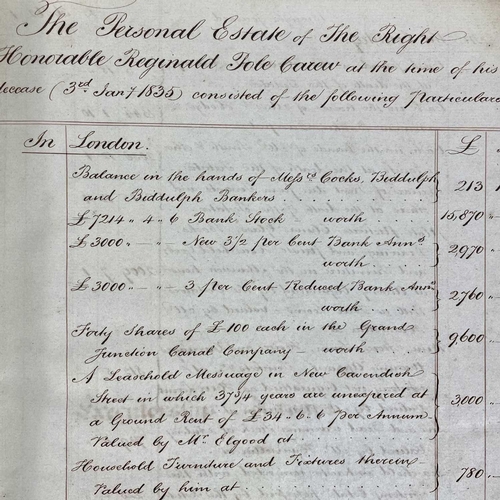 The Personal Estate of The Right
Honorable Reginald Pole Carew at the time of his
decease (3rd Jany 1835) consisted of the following Particulars
In London. £
Balance in the hands of Messrs Cocks, Biddulph
and Biddulph Bankers . . . . 213
£7214 " 4 " 6 Bank Stock worth . . . 15,870 "
£3000 " — " — New 3 1/2 per Cent Bank Anns
worth . . . 2,970 "
£3000 " — " — 3 per Cent Reduced Bank Anns
worth . . . 2,760 "
Forty Shares of £100 each in the Grand
Junction Canal Company — worth . . . 9,600 "
A Leasehold Messuage in New Cavendish
Street in which 37 3/4 years are unexpired at
a Ground Rent of £34 " 6 " 6 Per Annum
Valued by Mr. Elgood at . . . . 3,000 "
Household Furniture and Fixtures therein
Valued by him at . . . . 780 "